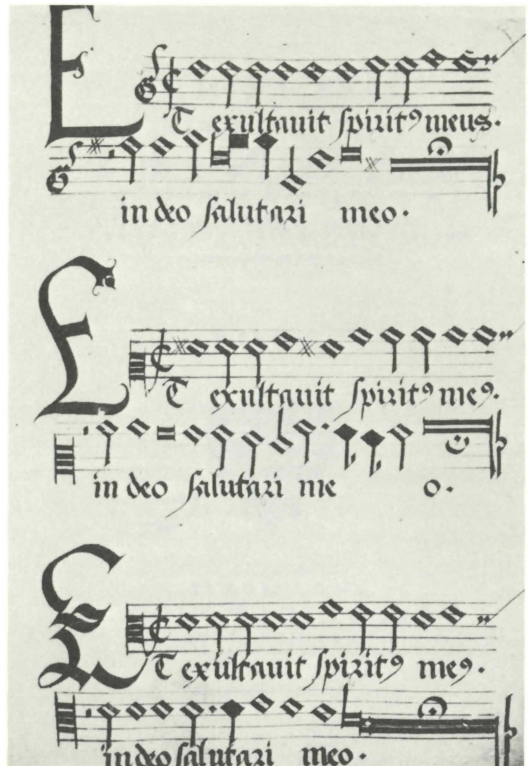 ET exultauit spiritꝰ meus.
in deo salutari meo.
ET exultauit spiritꝰ meꝰ.
in deo salutari me o.
ET exultauit spiritꝰ meꝰ.
in deo salutari meo.